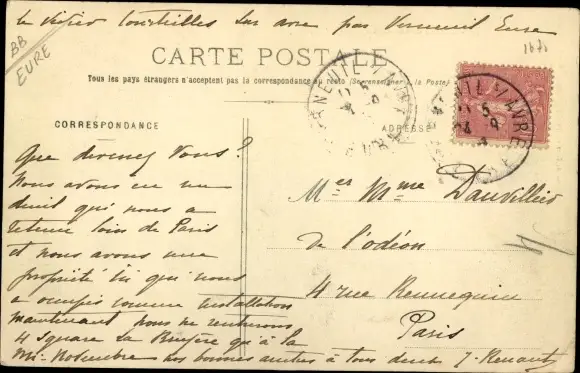 le Vésier Courteilles Sur avre par Verneuil Eure
BB
EURE
1670
CARTE POSTALE
Tous les pays étrangers n'acceptent pas la correspondance au recto (Se renseigner à la Poste)
CORRESPONDANCE
ADRESSE
Que devenez Vous?
Nous avons eu un
deuil qui nous a
retenu loin de Paris
et nous avons une
propriété ici qui nous
a occupés comme installation
maintenant nous ne rentrerons
4 Square La Bruyère qu'à la
Mi-Novembre nos bonnes amitiés à tous deux J. Renault
Mr Mme Dauvillier
de l'odéon
4 rue Rennequin
Paris
VERNEUIL S/ AVRE
EURE
VERNEUIL S/ AVRE